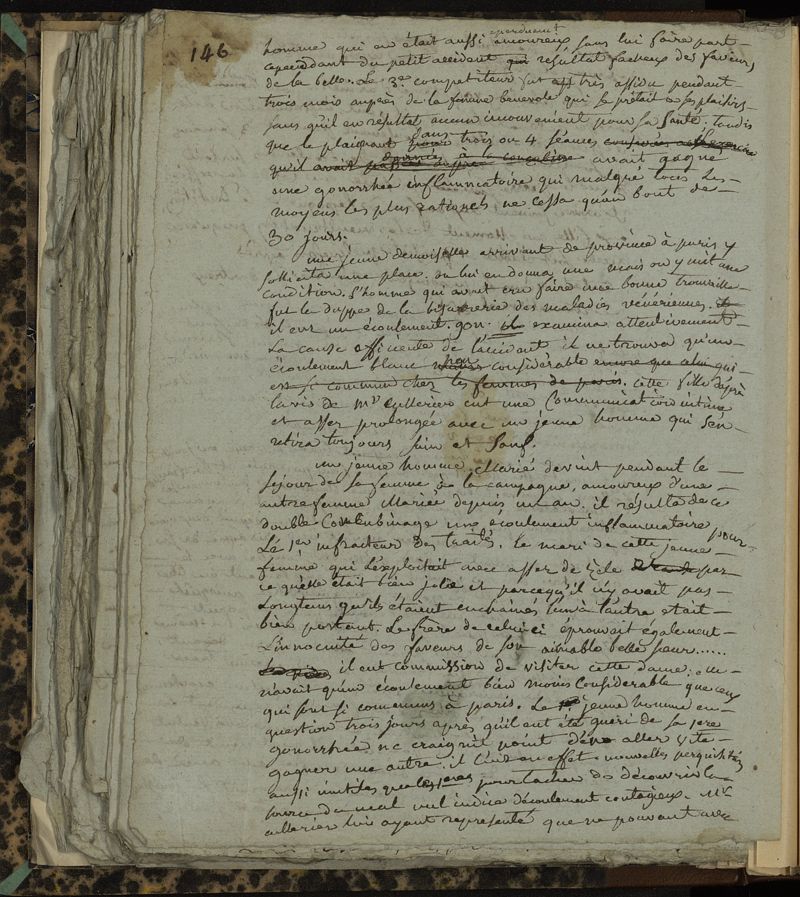 146
homme qui en était aussi éperduement amoureux sans lui faire part
cependant du petit accident qui résultat facheux des faveurs
de la belle. Le 3e competiteur fut très assidu pendant
trois mois auprès de la femme benevole qui se prêtait a ses plaisirs
sans qu'il en résultat aucun inconvenient pour sa santé. tandis
que le plaignant dans trois ou 4 séances
qu'il avait gagné
une gonorrhée inflammatoire qui malgré tous les
moyens les plus rationels ne cessa qu'au bout de
30 jours.
une jeune demoiselle arrivant de province à paris y
sollicita une place. on lui en donna une mais on y mit une
condition. l'homme qui avait cru faire une bonne trouvaille
fut le duppe de la bisarrerie des maladies vénériennes.
il eut un écoulement. gon. il examina attentivement
la cause efficiente de l'accident il ne trouva qu'un
écoulement blanc non considérable encore que celui qui
est si commun chez les femmes de paris. cette fille d'après
l'avis de Mr Cullerier eut une communication intime
et assez prolongée avec un jeune homme qui s'en
retira toujours sain et sauf.
un jeune homme Marié devint pendant le
séjour de sa femme à la campagne, amoureux d'une
autre femme Mariée depuis un an. il résulta de ce
double Concubinage un écoulement inflammatoire pour
le 1er infracteur des traités. le mari de cette jeune
femme qui l'exploitait avec assez de zèle par
ce qu'elle était bien jolie et parcequ'il n'y avait pas
longtems qu'ils étaient enchainés l'un à l'autre etait
bien portant. Le frère de celui ci éprouvait également
l'innocuité des faveurs de son aimable belle sœur......
il eut commission de visiter cette dame.
n'avait qu'un écoulement bien moins considérable que ceux
qui sont si communs à paris. Le jeune homme en
question trois jours après qu'il eut été guéri de sa 1ere
gonorrhée ne craignit point d'en aller vite
gagner une autre. il l'eut en effet. nouvelles perquisitions
aussi inutiles que les 1eres pour tacher de découvrir la
source du mal nul indice d'écoulement contagieux. Mr
cullerier lui ayant représenté que ne pouvant avec